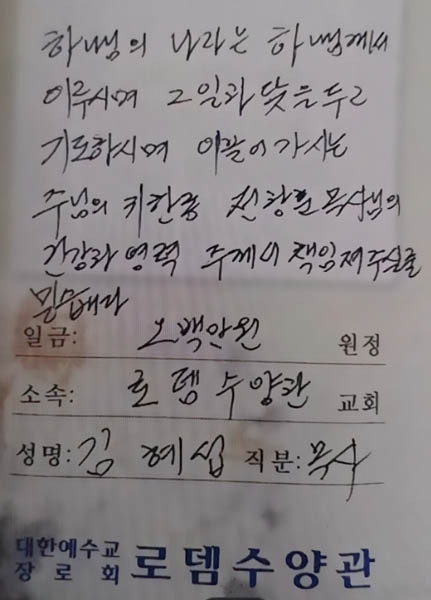 하나님의 나라는 하나님께서
이루시며 그 일과 맞물고
기도하시며 이끌어 가시는
주님의 귀한종 전창훈 목사님의
건강과 영력 주께서 책임져 주실줄
믿습니다
일금: 오백만원 원정
소속: 로뎀수양관 교회
성명: 김혜섭 직분: 목사
대한예수교
장로회 로뎀수양관